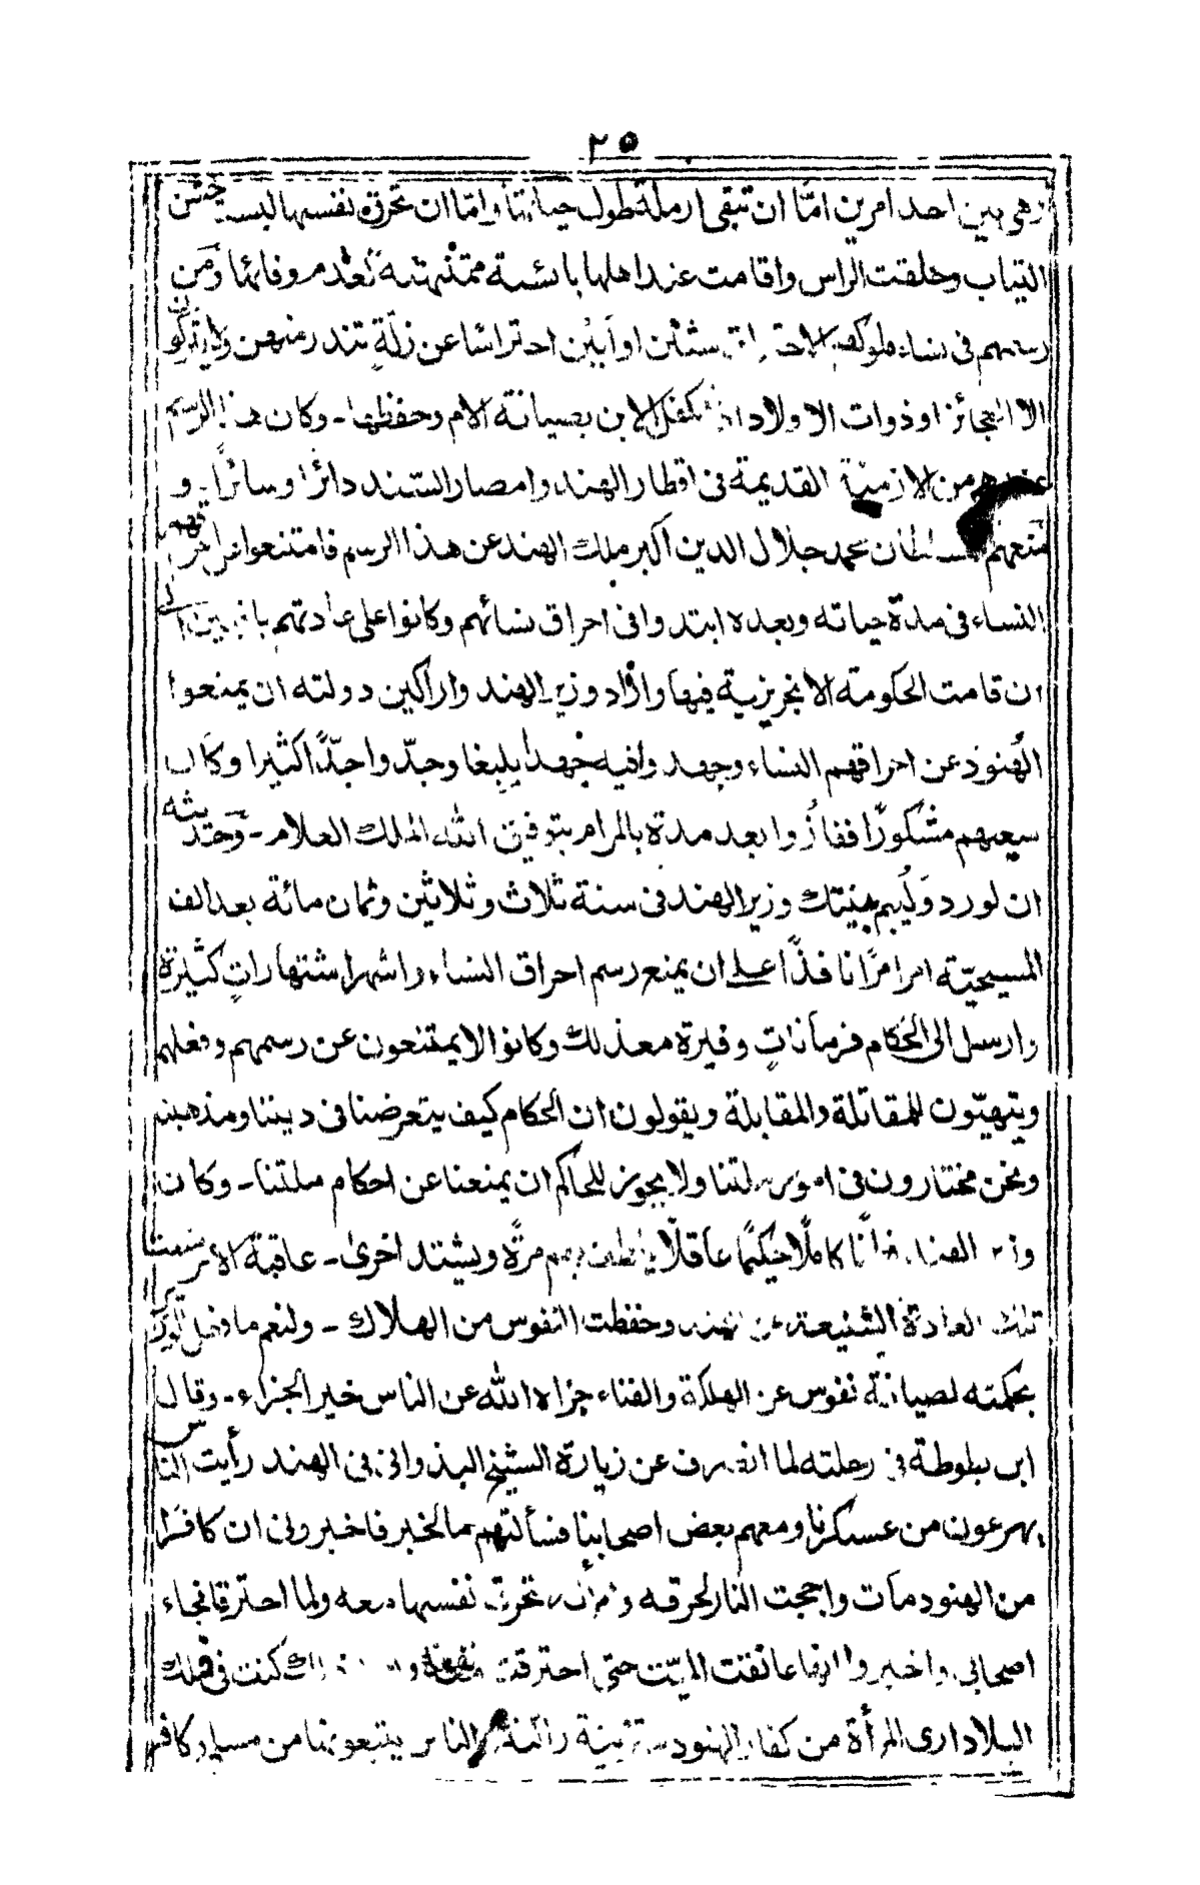 ٢٥
وهي بين احد امرين امّا ان تبقى ارملة طول حياتها وامّا ان تحرق نفسها لبست خشن
الثياب وحلقت الراس واقامت عند اهلها بائسة ممتهنة لعدم وفائها ومن
رسمهم فى نساء ملوكهم الاحتراق شئن او ابين احتراسًا عن زلّةٍ تندر منهن ولا يتركون
الا العجائز او ذوات الاولاد اذ تكفل الابن بصيانة الام وحفظها - وكان هذا الرسم
عندهم من الازمنة القديمة فى اقطار الهند وامصار السند دائرًا وسائرًا - و
منعهم السلطان محمد جلال الدين اكبر ملك الهند عن هذا الرسم فامتنعوا عن احراقهم
النساء فى مدة حياته وبعده ابتدوا فى احراق نسائهم وكانوا على عادتهم الى
ان قامت الحكومة الانجريزية فيها واراد وزير الهند واراكين دولته ان يمنعوا
الهنود عن احراقهم النساء وجهد وافيه جهدًا بليغا وجدّ واجدًّا كثيرا وكان
سعيهم مشكورًا ففازوا بعد مدة بالمرام بتوفيق الله الملك العلام - وحديثه
ان لورد وليم بنيتك وزير الهند فى سنة ثلاث وثلاثين وثمان مائة بعد الف
المسيحيّة امر امرًا نافذًا على ان يمنع رسم احراق النساء واشهر اشتهاراتٍ كثيرة
وارسل الى الحكام فرماناتٍ وفيرة معذلك وكانوا لا يمتنعون عن رسمهم وفعلهم
ويتهيّون للمقاتلة والمقابلة ويقولون ان الحكام كيف يتعرضنا فى ديننا ومذهبنا
ونحن مختارون فى امور ملتنا ولا يجوز للحاكم ان يمنعنا عن احكام ملتنا - وكان
كاملًا حكيمًا عاقلًا يلطف بهم مرّة ويشتد اخرى - عاقبة الامر
تلك العادة الشنيعة عن الهند وحفظت النفوس من الهلاك - ولنعم ما فعل
بحكمته لصيانة نفوس عن الهلكة والفناء جزاه الله عن الناس خير الجزاء - وقال
ابن بطوطة فى رحلته لما انصرف عن زيارة الشيخ البذوانى فى الهند رأيت الناس
يهرعون من عسكرنا ومعهم بعض اصحابنا فسألتهم مالخبر فاخبرونى ان كافرًا
من الهنود مات واججت النار لحرقه وامرأته تحرق نفسها معه ولما احترقا فجاء
اصحابى واخبروا انها عانقت الميّت حتى احترقت كنت فى تلك
البلاد ارى المرأة من كفار الهنود متزينة راكبة والناس يتبعونها من مسلم وكافر